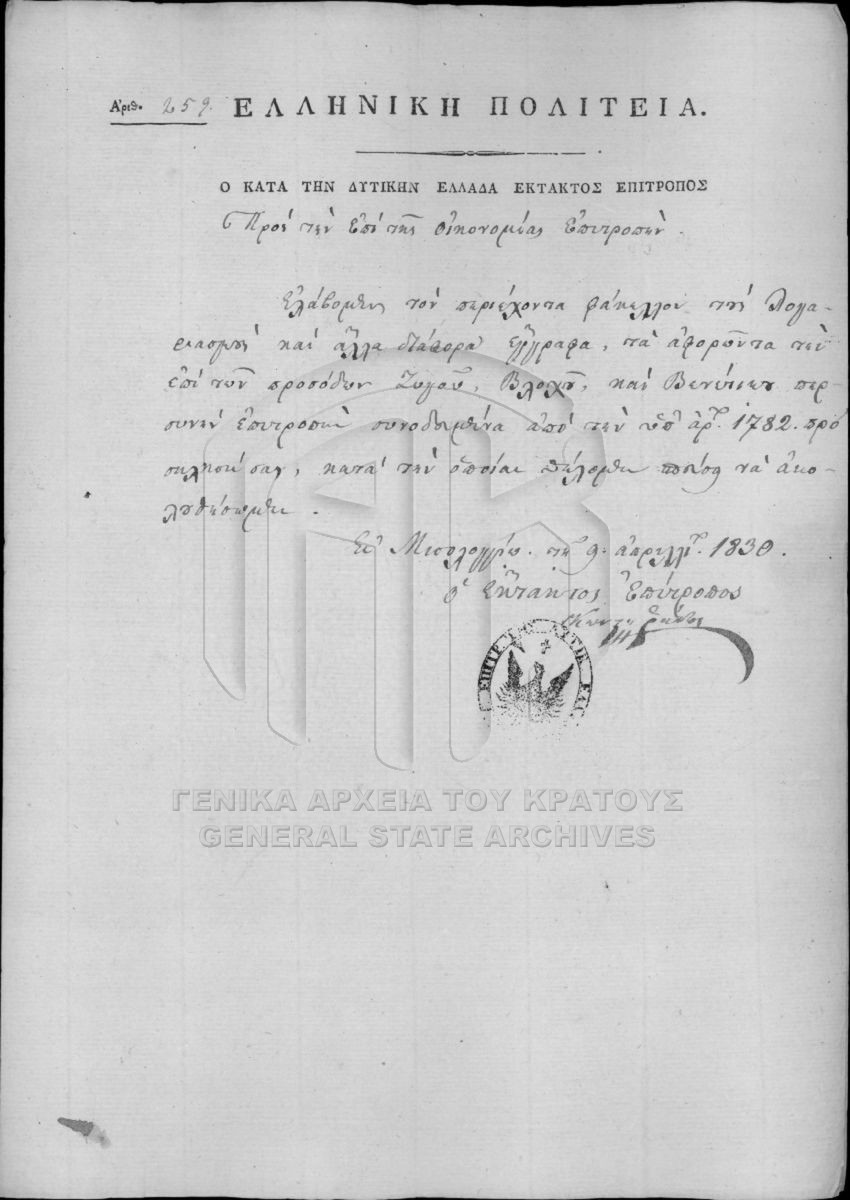 Ἀριθ. 259.
ΕΛΛΗΝΙΚΗ ΠΟΛΙΤΕΙΑ.
Ο ΚΑΤΑ ΤΗΝ ΔΥΤΙΚΗΝ ΕΛΛΑΔΑ ΕΚΤΑΚΤΟΣ ΕΠΙΤΡΟΠΟΣ
Πρὸς τὴν ἐπὶ τῆς Οἰκονομίας Ἐπιτροπὴν.
Ἐλάβομεν τὸν περιέχοντα φάκελλον τοὺς λογα-
ριασμοὺς καὶ ἄλλα διάφορα ἔγγραφα, τὰ ἀφορῶντα τὴν
ἐπὶ τῶν προσόδων Ζυγοῦ, Βλοχοῦ, καὶ Βενέτικου περ-
συνὴν ἐπιτροπὴν συνοδευμένα ἀπὸ τὴν ὑπ' ἀρ. 1782. πρό
σκλησίν σας, κατὰ τὴν ὁποίαν θέλομεν νὰ ἀκο-
λουθήσωμεν.
Ἐν Μισολογγίῳ τῇ 9. ἀπριλλί. 1830.
ὁ Ἔκτακτος Ἐπίτροπος
ΓΕΝΙΚΑ ΑΡΧΕΙΑ ΤΟΥ ΚΡΑΤΟΥΣ
GENERAL STATE ARCHIVES